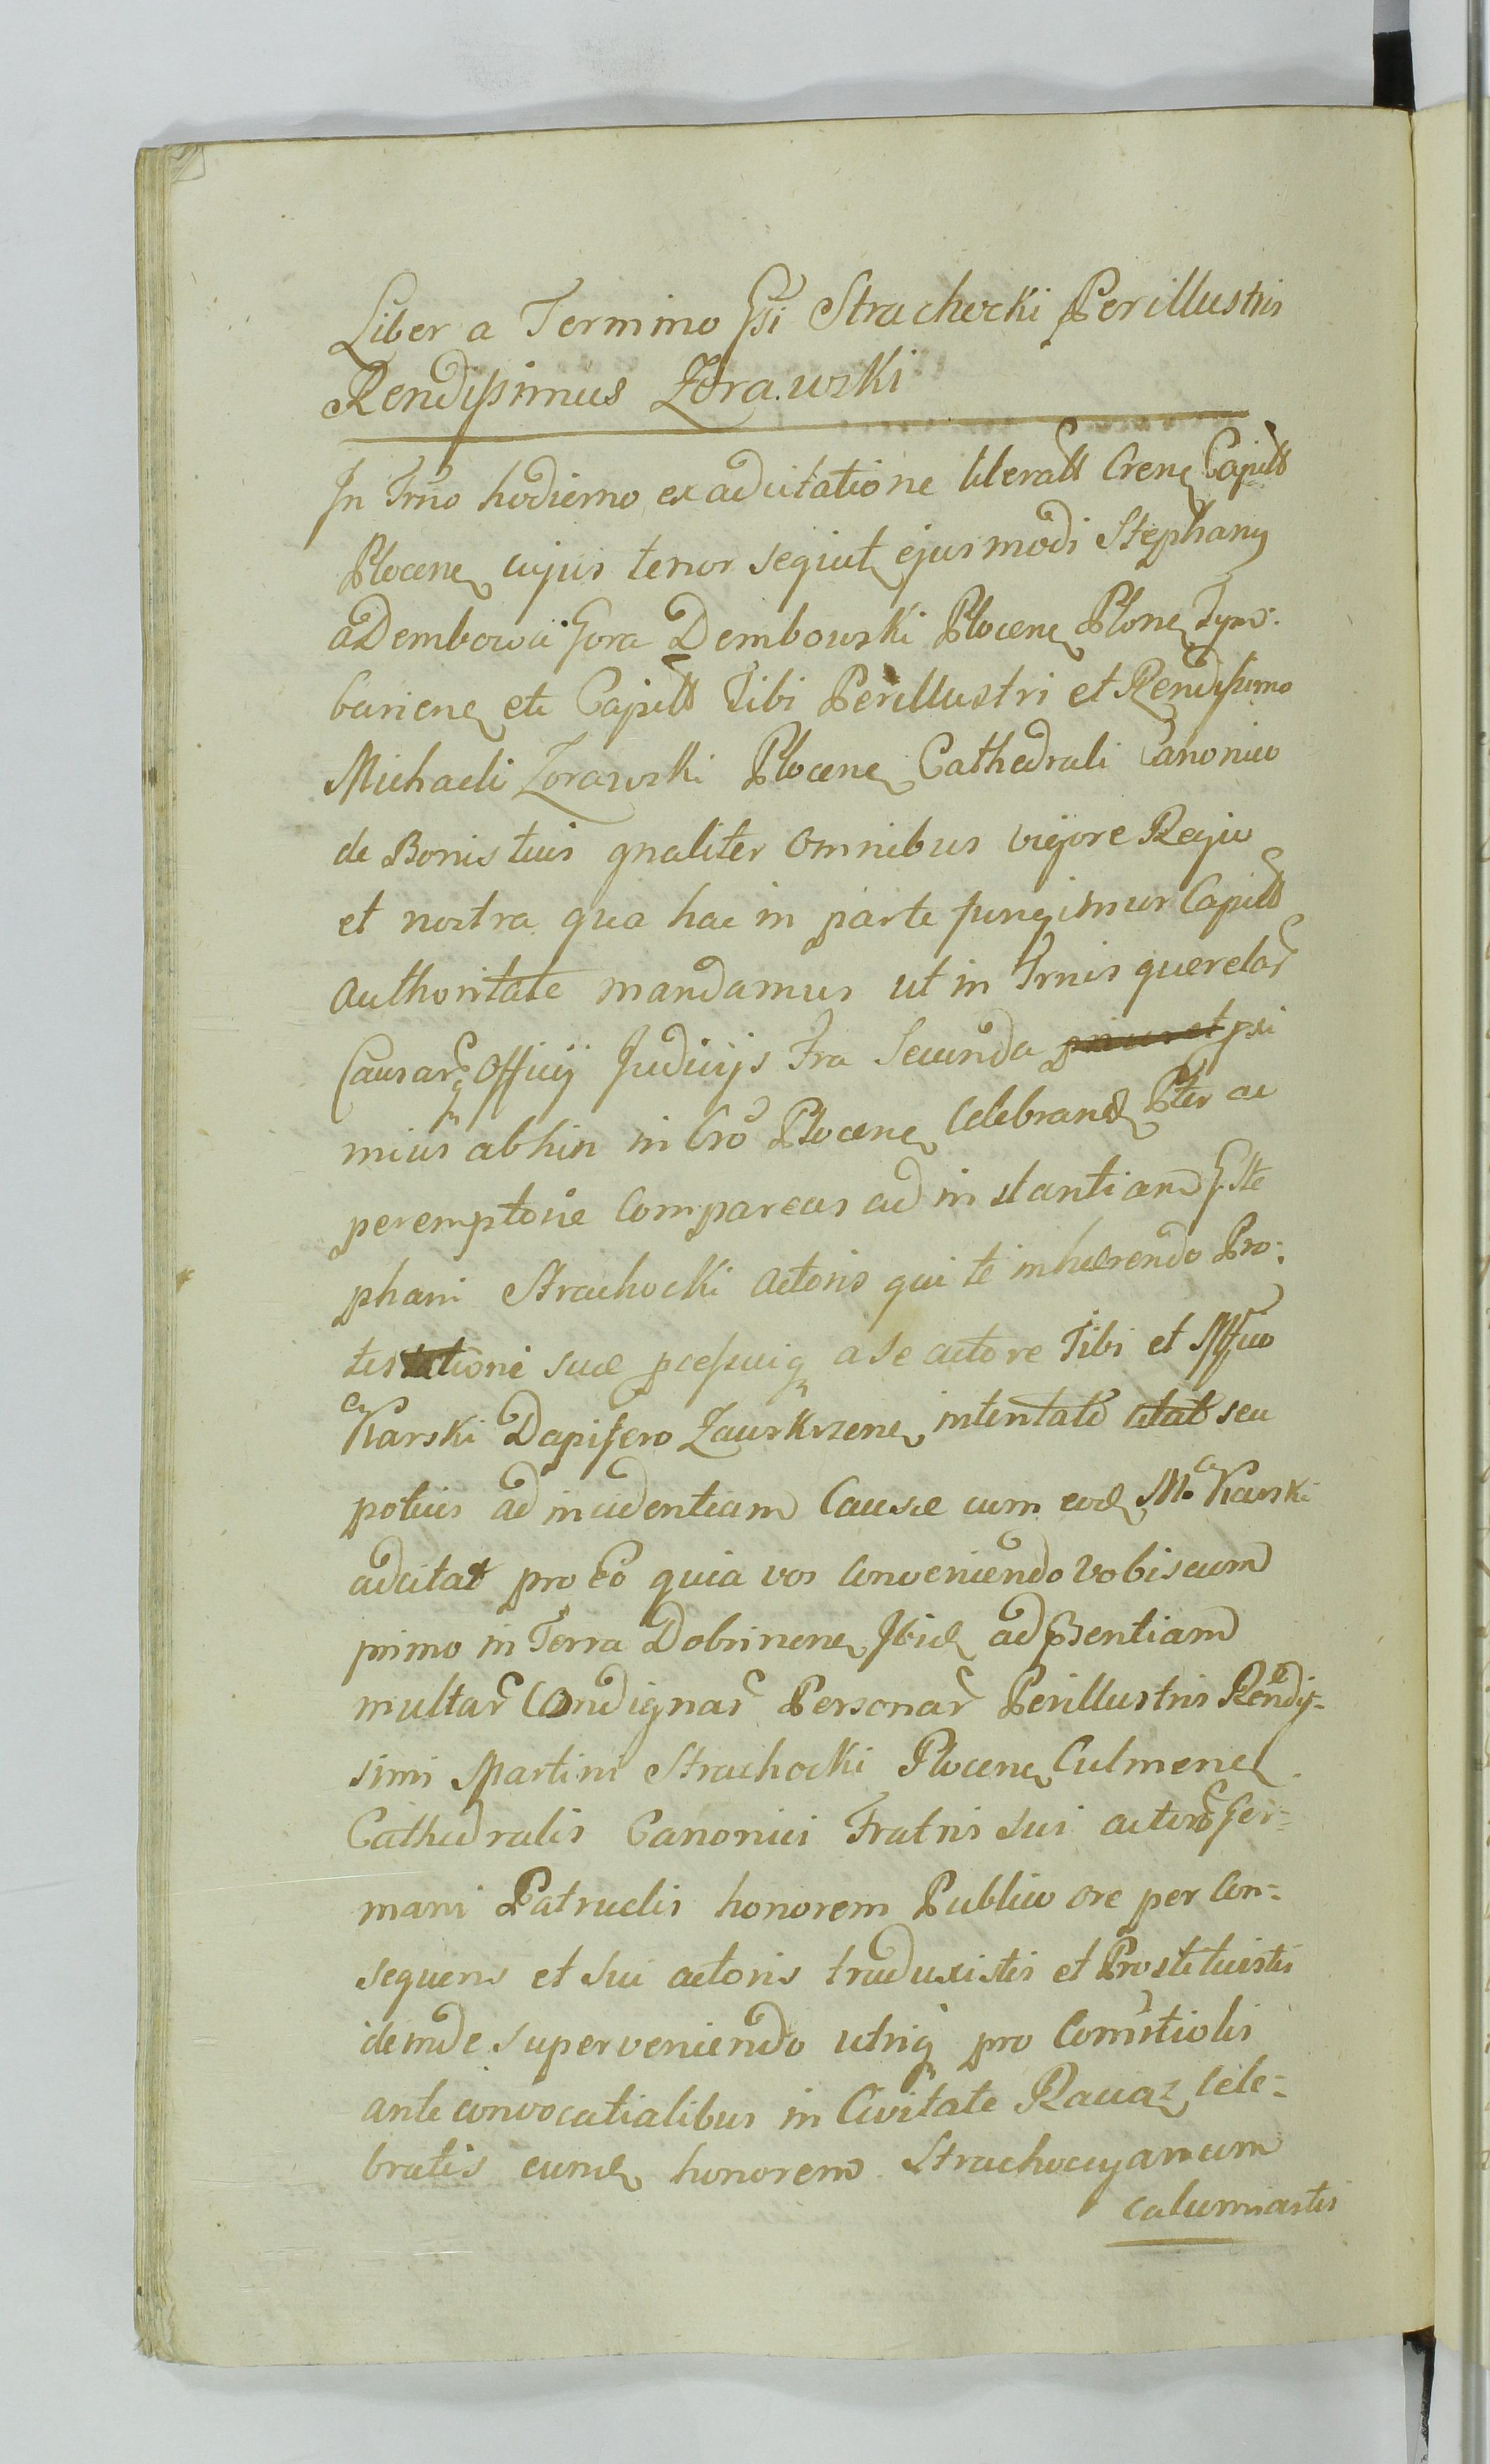 Liber a Termino Gsi Strachocki Perillustris
Rendissimus Zorawski
In Trno hodierno ex adcitatione literali Crenẹ Capitt
Plocenẹ cujus tenor sequit ejusmodi Stephanꝰ
a Dembowa Gora Dembowski Plocenẹ Plonẹ Tyms-
barienẹ etc Capitt Tibi Perillustri et Rendissimo
Michaeli Zorawski Plocenẹ Cathedrali Canonico
de Bonis tuis gnaliter omnibus vigore Regio
et nostra qua hac in parte fungimur Capitt
Authoritate mandamus ut in Trnis querelar
Causarq Officij Judicijs Fra Secunda pxi
mius abhin in Cro Plocenẹ Celebrand Pter ac
peremptorie Compareas ad instantiam G. Ste
phani Strachocki Actoris qui te inhaerendo Pro-
testationi suae a se actore Tibi et Mfico
Karski Dapifero Zawskrzenẹ intentato citat seu
potius ad incidentiam Causae cum eod M. Karski
adcitat pro eo quia vos conveniendo vobiscum
primo in Terra Dobrinenẹ Ibid ad Psentiam
multar Condignar Personar Perillustris Rendis-
simi Martini Strachocki Plocenẹ Culmenẹ
Cathedralis Canonici Fratris sui actoris Ger-
mani Patruelis honorem Publico ore per Con-
sequens et sui actoris traduxistis et Prostituistis
deinde superveniendo utriq pro Comitiolis
ante convocatialibus in Civitate Raciaz Cele-
bratis eund honorem Strachocyanum
calumniastis